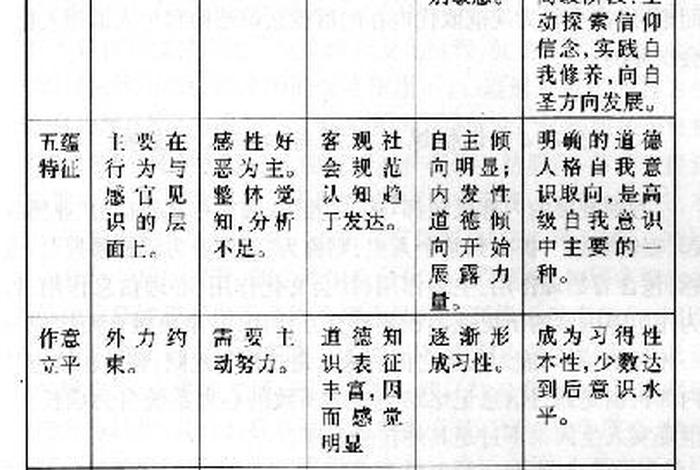 动探索信仰
信念，实践自
我修养，向自
圣方向发展。
五蕴
特征
主要在
行为与
感官见
识的层
面上。
感性好
恶为主。
整体觉
知，分析
不足。
客观社
会规范
认知趋
于发达。
自主倾
向明显；
内发性
道德倾
向开始
展露力
量。
明确的道德
人格自我意
识取向，是高
级自我意识
中主要的一
种。
作意
立平
外力约
束。
需要主
动努力。
道德知
识表征
丰富，因
而感觉
明显
逐渐形
成习性。
成为习得性
本性，少数达
到后意识水
平。